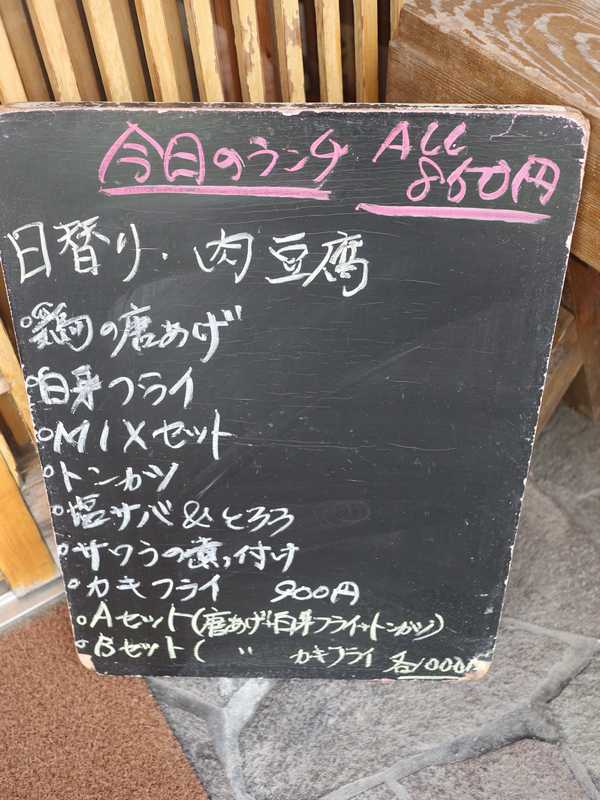 今日のランチ ALL 850円
日替り・肉豆腐
○鶏の唐あげ
○白身フライ
○MIXセット
○トンカツ
○塩サバ&とろろ
○サワラの煮つ付け
○カキフライ 900円
○Aセット(唐あげ・白身フライ・トンカツ)
○Bセット( 〃 カキフライ 各1000円